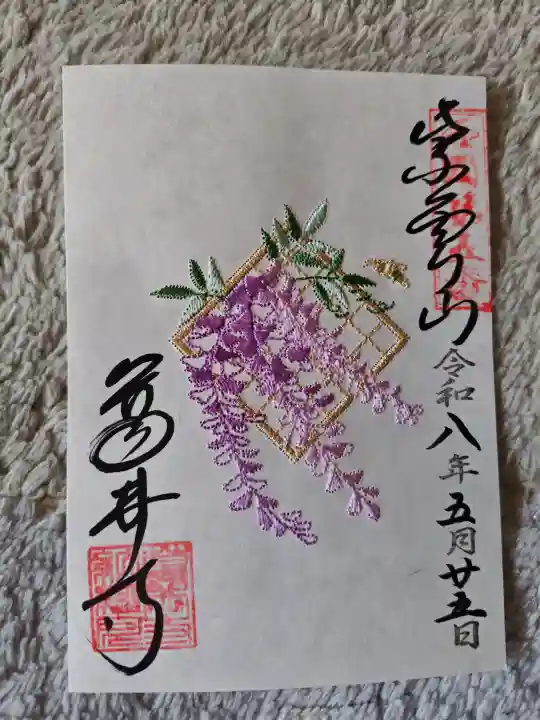 紫雲山
令和八年五月廿五日
葛井寺